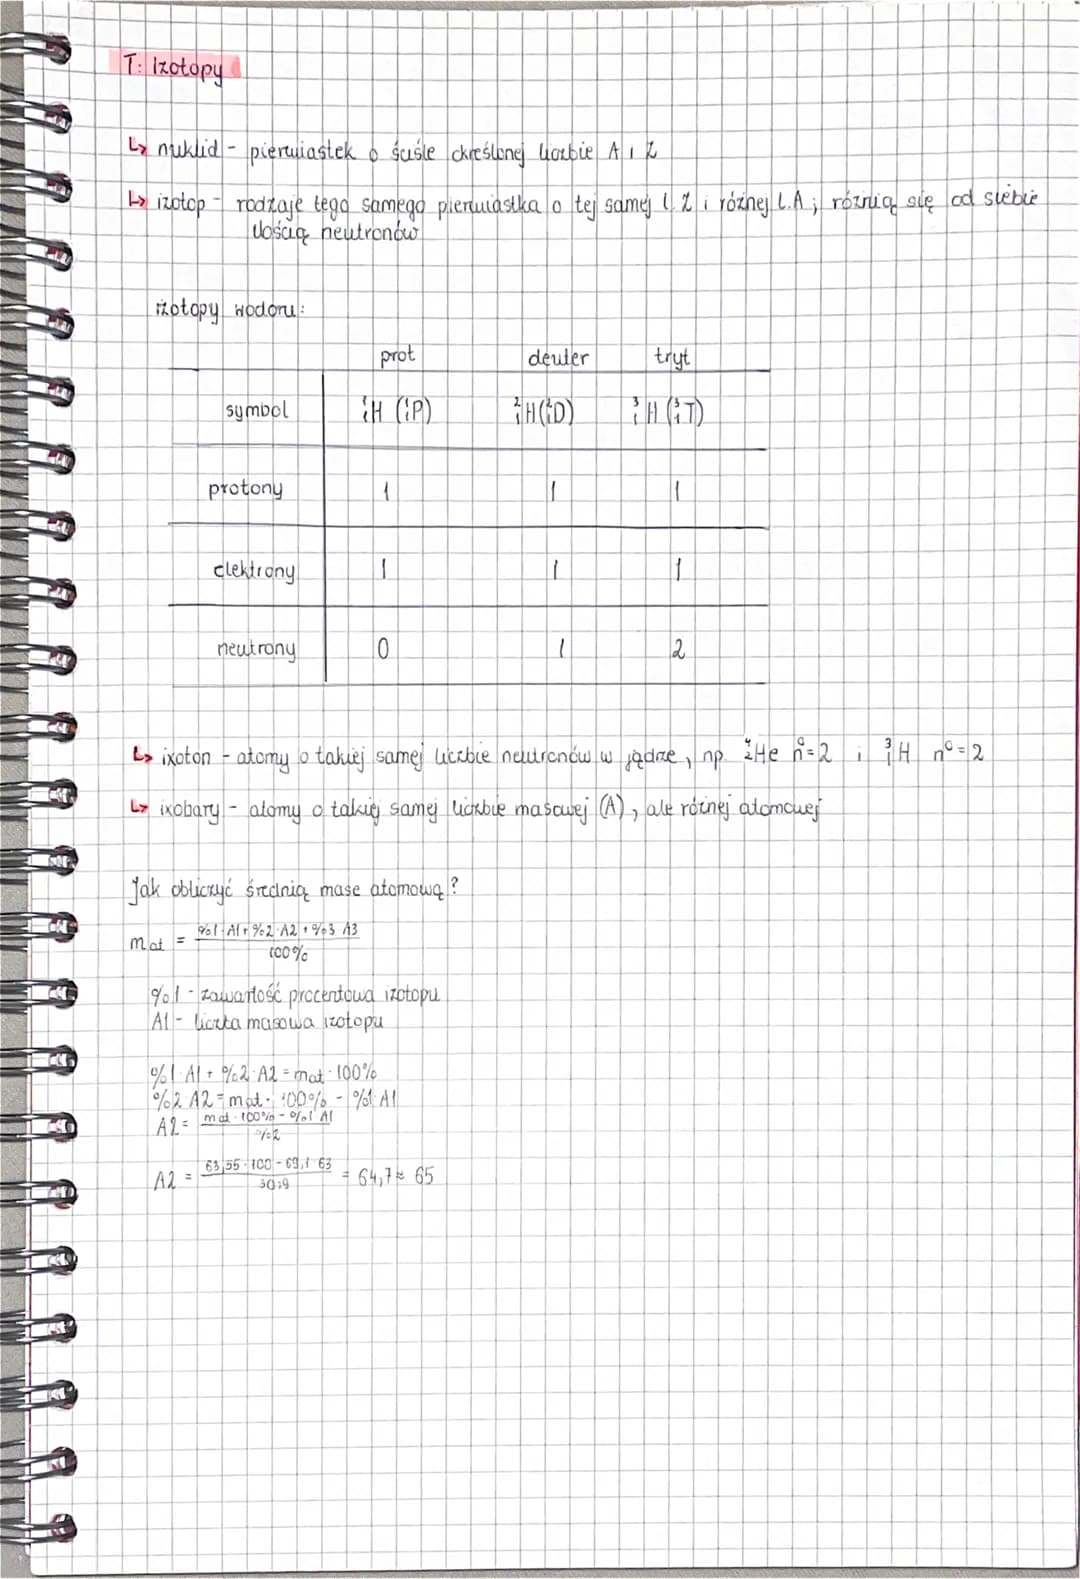 T: Izotopy
↳ nuklid - pierwiastek o ściśle określonej liczbie A i Z
↳ izotop - rodzaje tego samego pierwiastka o tej samej l. Z i różnej l.A; różnią się od siebie
ilością neutronów
izotopy wodoru:
prot deuter tryt
symbol ¹₁H (¹₁P) ²₁H (²₁D) ³₁H (³₁T)
protony 1 1 1
elektrony 1 1 1
neutrony 0 1 2
↳ izoton - atomy o takiej samej liczbie neutronów w jądrze, np. ⁴₂He n⁰=2 i ³₁H n⁰=2
↳ izobary - atomy o takiej samej liczbie masowej (A), ale różnej atomowej
Jak obliczyć średnią mase atomową?
mat = %1·A1+%2·A2+%3·A3
100%
%1 - zawartość procentowa izotopu
A1 - liczba masowa izotopu
%1·A1 + %2·A2 = mat·100%
%2·A2 = mat·100% - %1·A1
A2 = mat·100% - %1·A1
%2
A2 = 63,55·100 - 69,1·63 = 64,7 ≈ 65
30,9